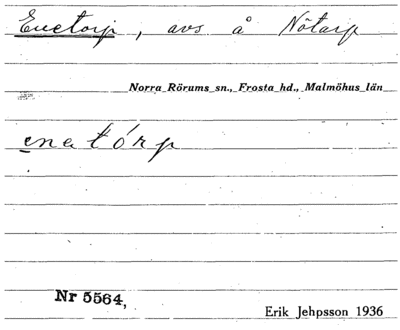 Enetorp, avs å Nötarp
Norra Rörums sn., Frosta hd., Malmöhus län
enatórp
Nr 5564,
Erik Jehpsson 1936